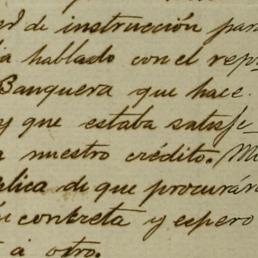 de instrucción para
hablado con el rep
Banquera que hace
y que estaba satisfe
a nuestro crédito. M
plica de que procurára
concreta y espero
á otro.